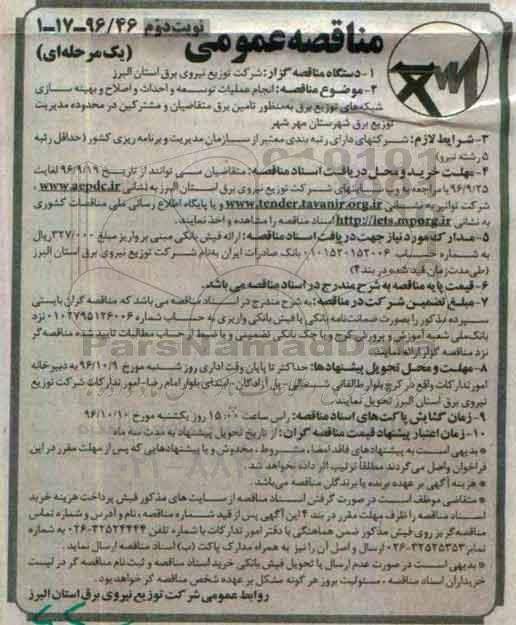 نوبت دوم ۹۶/۴۶-۱۷-۱
مناقصه عمومی
(یک مرحله‌ای)
۱-دستگاه مناقصه گزار: شرکت توزیع نیروی برق استان البرز
۲-موضوع مناقصه: انجام عملیات توسعه و احداث و اصلاح و بهینه سازی
شبکه‌های توزیع برق به‌منظور تامین برق متقاضیان و مشترکین در محدوده مدیریت
توزیع برق شهرستان مهر شهر
۳-شرایط لازم: شرکتهای دارای رتبه بندی معتبر از سازمان مدیریت و برنامه ریزی کشور (حداقل رتبه
۵ رشته نیرو)
۴-مهلت خرید و محل دریافت اسناد مناقصه: متقاضیان می توانند از تاریخ ۹۶/۹/۱۹ لغایت
۹۶/۹/۲۵ با مراجعه به وب سایتهای شرکت توزیع نیروی برق استان البرز به نشانی www.aepdc.ir و
شرکت توانیر به نشانی www.tender.tavanir.org.ir و یا پایگاه اطلاع رسانی ملی مناقصات کشوری
به نشانی http://iets.mporg.ir اسناد مناقصه را مشاهده و اخذ نمایند.
۵-مدارک مورد نیاز جهت دریافت اسناد مناقصه: ارائه فیش بانکی مبنی بر واریز مبلغ ۳۲۷/۰۰۰ ریال
به شماره حساب ۰۱۰۱۵۲۰۱۵۲۰۰۶ بانک صادرات ایران به‌نام شرکت توزیع نیروی برق استان البرز
(طی مدت زمان قید شده در بند ۴)
۶-قیمت پایه مناقصه به شرح مندرج در اسناد مناقصه می باشد.
۷-مبلغ تضمین شرکت در مناقصه: به شرح مندرج در اسناد مناقصه می باشد که مناقصه گران بایستی
سپرده مذکور را بصورت ضمانت‌نامه بانکی یا فیش بانکی واریزی به حساب شماره ۰۱۰۲۷۹۵۱۲۶۰۰۶ نزد
بانک ملی شعبه آموزش و پرورش کرج و یا چک بانکی تضمینی و یا ضبط از حساب مطالبات تایید شده مناقصه گر
نزد مناقصه گزار ارائه نمایند.
۸-مهلت و محل تحویل پیشنهادها: حداکثر تا پایان وقت اداری روز شنبه مورخ ۹۶/۱۰/۹ به دبیرخانه
امور تدارکات واقع در کرج بلوار طالقانی شمالی-پل آزادگان-ابتدای بلوار امام رضا-امور تدارکات شرکت توزیع
نیروی برق استان البرز تحویل نمایند.
۹-زمان گشایش پاکت های اسناد مناقصه: راس ساعت ۱۵:۰۰ روز یکشنبه مورخ ۹۶/۱۰/۱۰
۱۰-زمان اعتبار پیشنهاد قیمت مناقصه گران: از تاریخ تحویل پیشنهاد به مدت سه ماه
* بدیهی است به پیشنهادهای فاقد امضا، مشروط، مخدوش و یا پیشنهادهایی که پس از مهلت مقرر در این
فراخوان واصل می گردند مطلقاً ترتیب اثر داده نخواهد شد.
* هزینه آگهی بر عهده برنده یا برندگان مناقصه می‌باشد.
* متقاضی موظف است در صورت گرفتن اسناد مناقصه از سایت های مذکور فیش پرداخت هزینه خرید
اسناد مناقصه را ظرف مهلت مقرر در بند ۴ این آگهی پس از قید شماره مناقصه، نام و آدرس و شماره تماس
مناقصه گر بر روی فیش مذکور ضمن هماهنگی با دفتر امور تدارکات با شماره تلفن ۳۲۵۲۴۴۴۴-۰۲۶ به شماره
نمابر ۳۲۵۲۵۳۵۳-۰۲۶ ارسال و اصل آن را نیز به همراه مدارک پاکت (ب) اسناد مناقصه ارسال نماید.
* بدیهی است در صورت عدم ارسال یا تحویل فیش بانکی خرید اسناد مناقصه و ثبت نام مناقصه گر در لیست
خریداران اسناد مناقصه، مسئولیت بروز هر گونه مشکل بر عهده شخص مناقصه گر خواهد بود.
روابط عمومی شرکت توزیع نیروی برق استان البرز
ParsNamadData